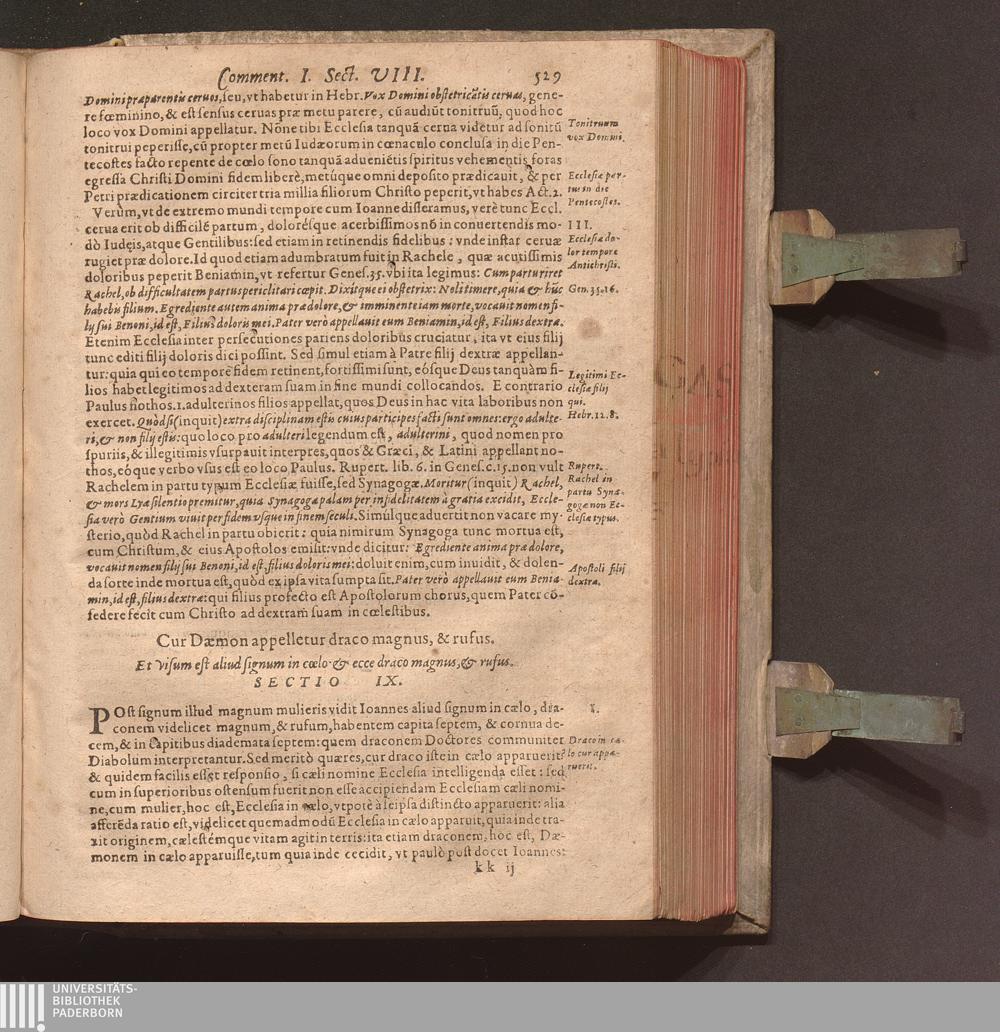 Comment. I. Sect. VIII. 529
Domini præparentis ceruos, seu, vt habetur in Hebr. Vox Domini obstetricãtis ceruas, gene-
re fœminino, & est sensus ceruas præ metu parere, cũ audiũt tonitruũ, quod hoc
loco vox Domini appellatur. Nõne tibi Ecclesia tanquã cerua videtur ad sonitũ
tonitrui peperisse, cũ propter metũ Iudæorum in cœnaculo conclusa in die Pen-
tecostes facto repente de cœlo sono tanquã aduenietis spiritus vehementis foras
egressa Christi Domini fidem liberè, metúque omni deposito prædicauit, & per
Petri prædicationem circiter tria millia filiorum Christo peperit, vt habes Act. 2.
Tonitruum
vox Domini.
Ecclesiæ par-
tus in die
Pentecostes.
Verùm, vt de extremo mundi tempore cum Ioanne disseramus, verè tunc Eccl.
cerua erit ob difficilé partum, dolorésque acerbissimos nõ in conuertendis mo-
dò Iudęis, atque Gentilibus: sed etiam in retinendis fidelibus: vnde instar ceruæ
rugiet præ dolore. Id quod etiam adumbratum fuit in Rachele, quæ acutissimis
doloribus peperit Beniamin, vt refertur Genes. 35. vbi ita legimus: Cum parturiret
Rachel, ob difficultatem partus periclitari cœpit. Dixitque ei obstetrix: Noli timere, quia & hũc
habebis filium. Egrediente autem anima præ dolore, & imminente iam morte, vocauit nomen fi-
lij sui Benoni, id est, Filius doloris mei. Pater verò appellauit eum Beniamin, id est, Filius dextræ.
Etenim Ecclesia inter persecutiones pariens doloribus cruciatur, ita vt eius filij
tunc editi filij doloris dici possint. Sed simul etiam à Patre filij dextræ appellan-
tur: quia qui eo tempore fidem retinent, fortissimi sunt, eósque Deus tanquàm fi-
lios habet legitimos ad dexteram suam in fine mundi collocandos. E contrario
Paulus nothos. i. adulterinos filios appellat, quos Deus in hac vita laboribus non
exercet. Quòd si (inquit) extra disciplinam estis cuius participes facti sunt omnes: ergo adulte-
ri, & non filij estis: quo loco pro adulteri legendum est, adulterini, quod nomen pro
spuriis, & illegitimis vsurpauit interpres, quos & Græci, & Latini appellant no-
thos, eóque verbo vsus est eo loco Paulus. Rupert. lib. 6. in Genes. c. 15. non vult
Rachelem in partu typum Ecclesiæ fuisse, sed Synagogæ. Moritur (inquit) Rachel,
& mors Lyæ silentio premitur, quia Synagoga palam per infidelitatem à gratia excidit, Eccle-
sia verò Gentium viuit per fidem vsque in finem seculi. Simúlque aduertit non vacare my-
sterio, quòd Rachel in partu obierit: quia nimirum Synagoga tunc mortua est,
cum Christum, & eius Apostolos emisit: vnde dicitur: Egrediente anima præ dolore,
vocauit nomen filij sui Benoni, id est, filius doloris mei: doluit enim, cum inuidit, & dolen-
da sorte inde mortua est, quòd ex ipsa vita sumpta sit. Pater verò appellauit eum Benia-
min, id est, filius dextræ: qui filius profecto est Apostolorum chorus, quem Pater cõ-
sedere fecit cum Christo ad dextram suam in cœlestibus.
III.
Ecclesiæ do-
lor tempore
Antichristi.
Gen. 35. 16.
Legitimi Ec-
clesiæ filij
qui.
Hebr. 12. 8.
Rupert.
Rachel in
partu Syna-
gogæ non Ec-
clesiæ typus.
Apostoli filij
dextræ.
Cur Dæmon appelletur draco magnus, & rufus.
Et visum est aliud signum in cœlo & ecce draco magnus, & rufus.
SECTIO IX.
POst signum illud magnum mulieris vidit Ioannes aliud signum in cælo, dra-
conem videlicet magnum, & rufum, habentem capita septem, & cornua de-
cem, & in capitibus diademata septem: quem draconem Doctores communiter
Diabolum interpretantur. Sed meritò quæres, cur draco iste in cælo apparuerit?
& quidem facilis esset responsio, si cæli nomine Ecclesia intelligenda esset: sed
cum in superioribus ostensum fuerit non esse accipiendam Ecclesiam cæli nomi-
ne, cum mulier, hoc est, Ecclesia in cælo, vtpotè à seipsa distincto apparuerit: alia
afferẽda ratio est, videlicet quemadmodũ Ecclesia in cælo apparuit, quia inde tra-
xit originem, cælestémque vitam agit in terris: ita etiam draconem, hoc est, Dæ-
monem in cælo apparuisse, tum quia inde cecidit, vt paulò post docet Ioannes:
I.
Draco in cæ-
lo cur appa-
ruerit.
kk ij
UNIVERSITÄTS-
BIBLIOTHEK
PADERBORN